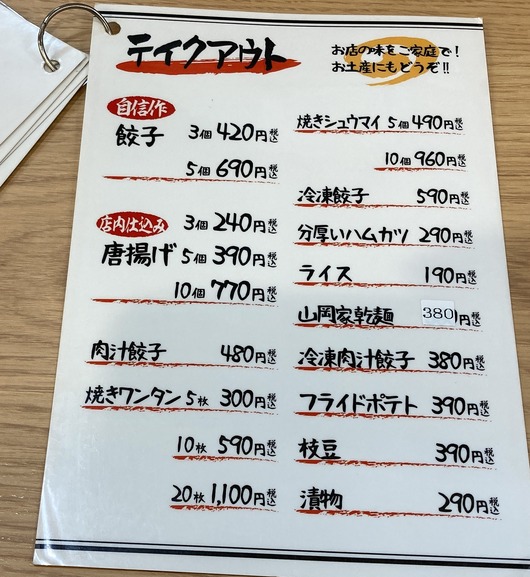 テイクアウト
お店の味をご家庭で！
お土産にもどうぞ!!
自信作
餃子 3個 420円税込
5個 690円税込
店内仕込み
唐揚げ 3個 240円税込
5個 390円税込
10個 770円税込
肉汁餃子 480円税込
焼きワンタン 5枚 300円税込
10枚 590円税込
20枚 1,100円税込
焼きシュウマイ 5個 490円税込
10個 960円税込
冷凍餃子 590円税込
分厚いハムカツ 290円税込
ライス 190円税込
山岡家乾麺 380円税込
冷凍肉汁餃子 380円税込
フライドポテト 390円税込
枝豆 390円税込
漬物 290円税込